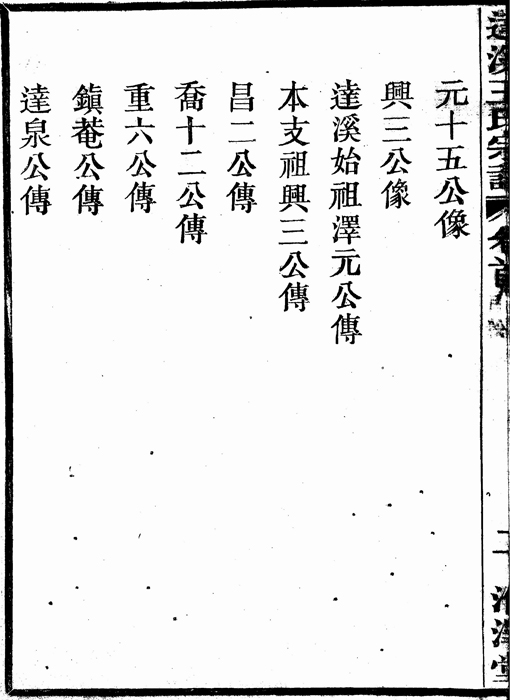 元十五公像
興三公像
達溪始祖澤元公傳
本支祖興三公傳
昌二公傳
喬十二公傳
重六公傳
鎮菴公傳
達泉公傳
達溪王氏宗譜 卷首